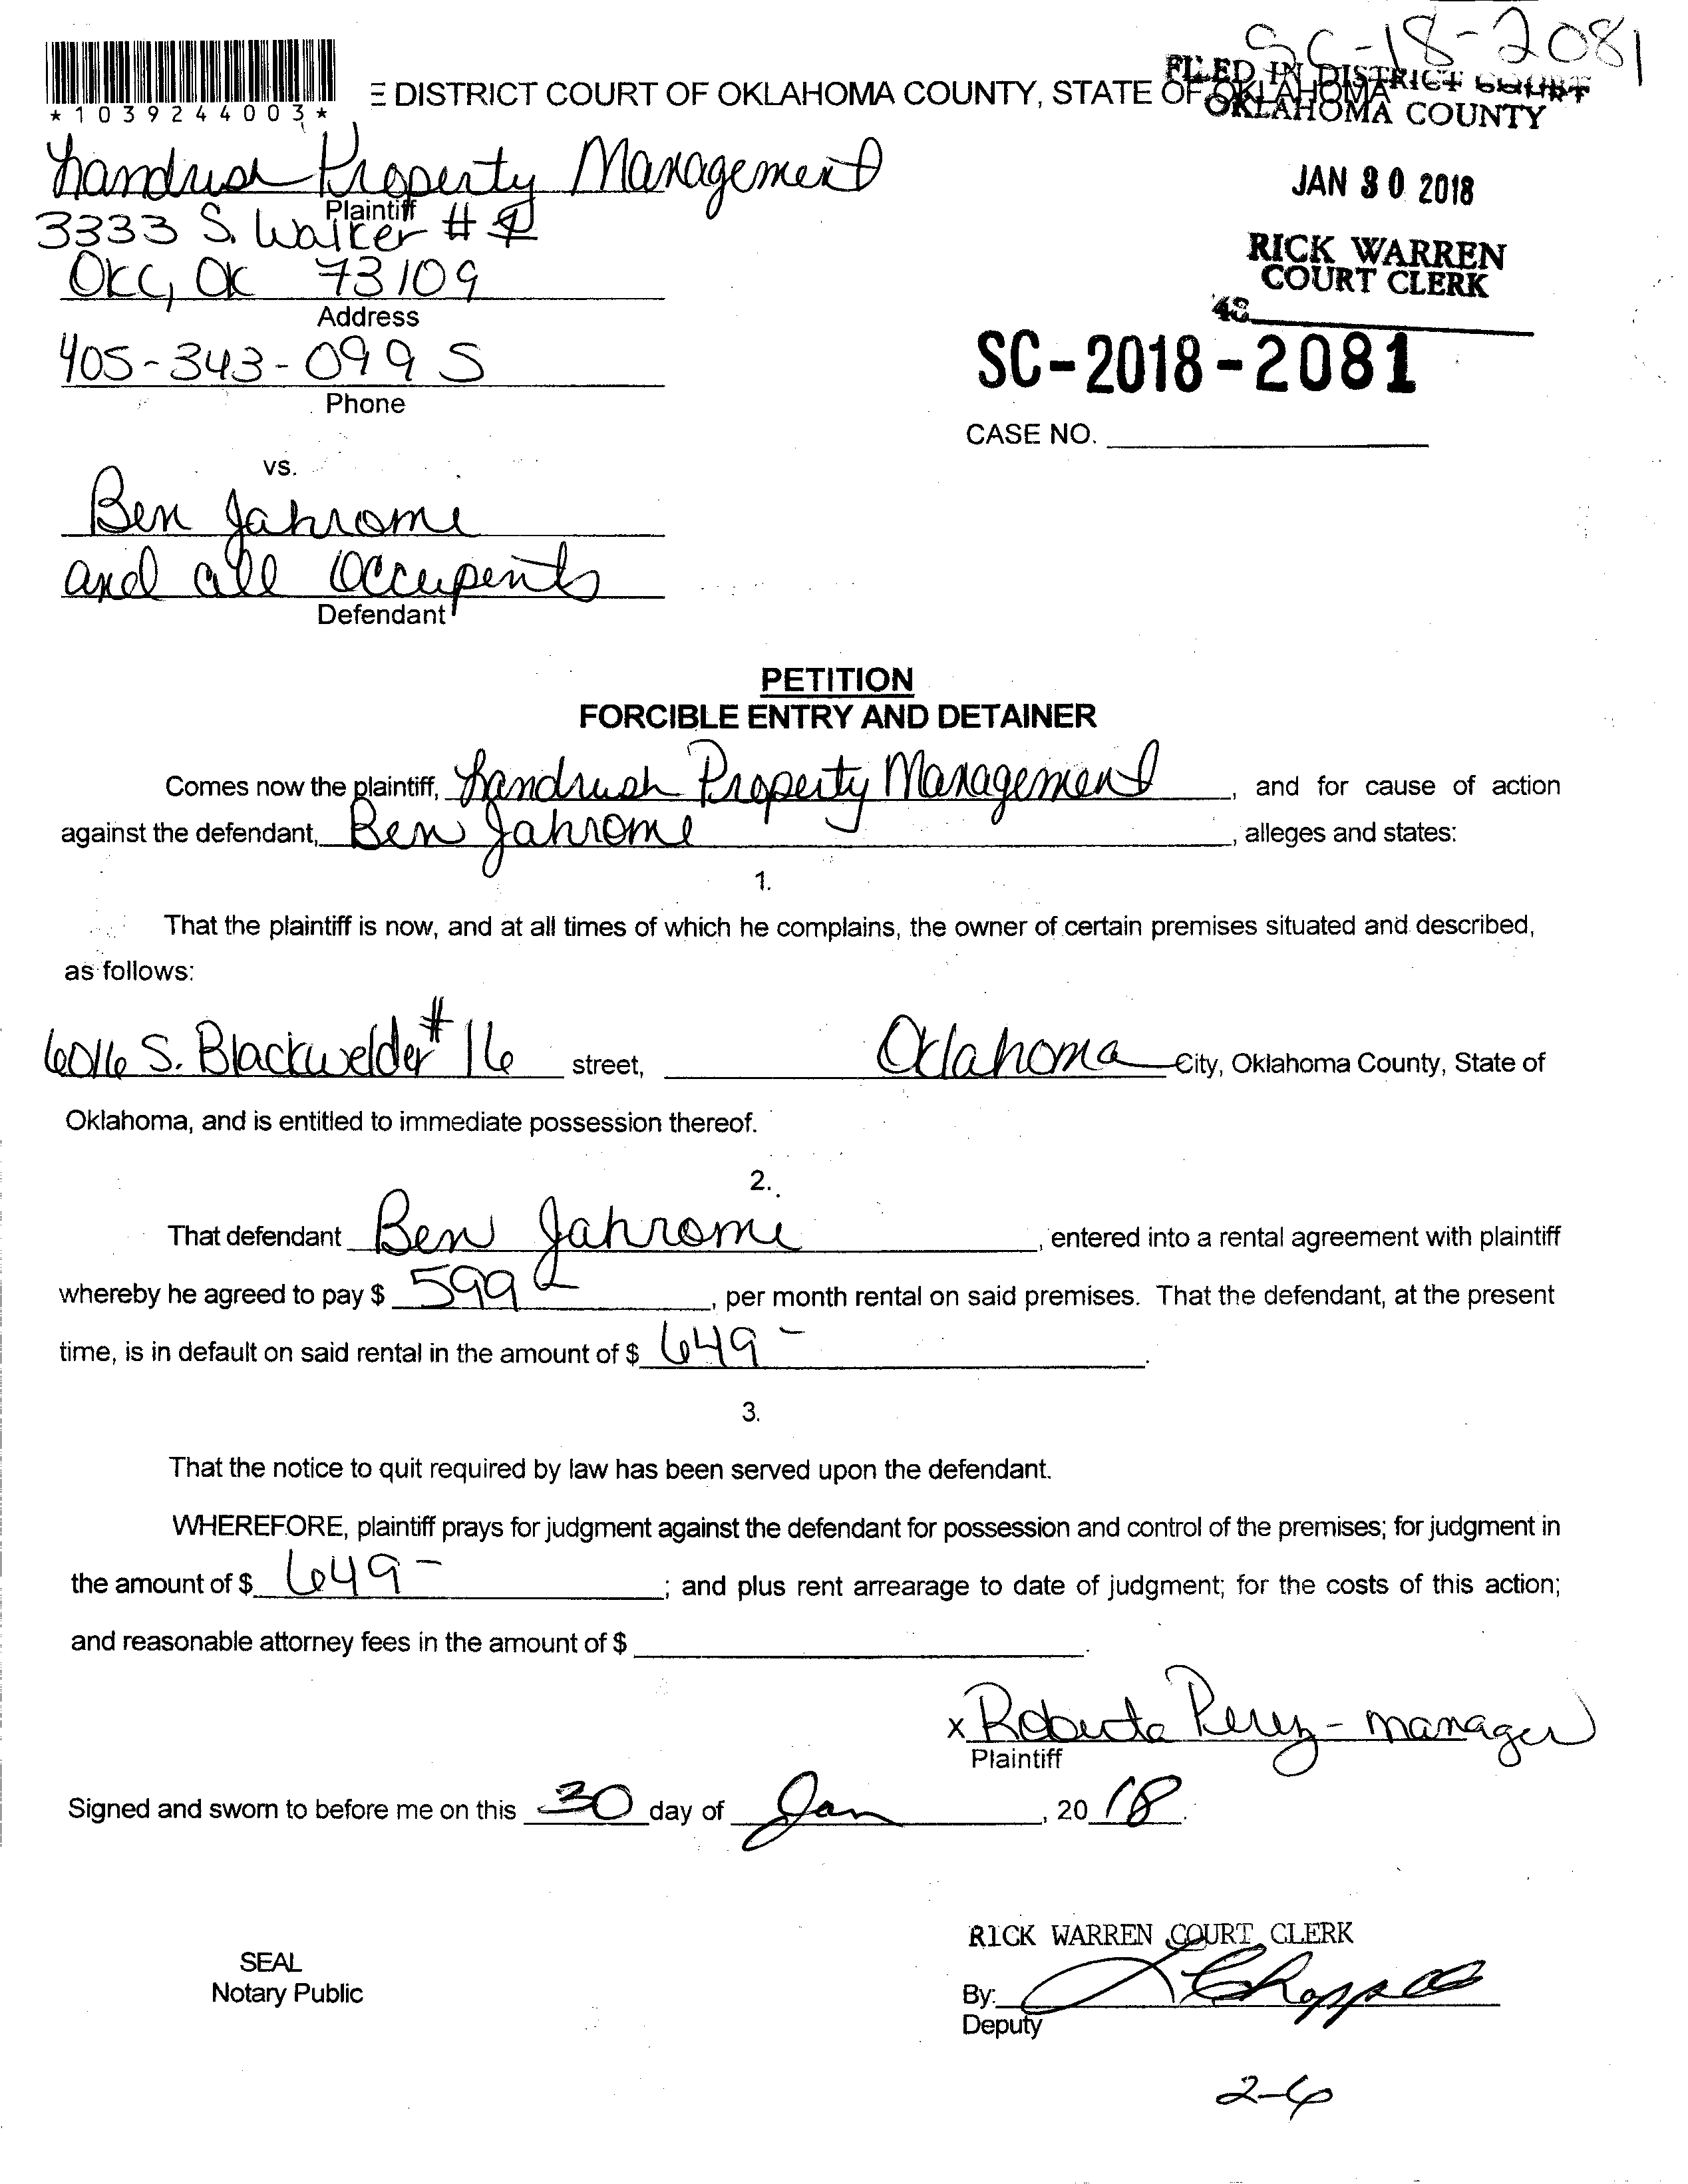 SC-18-2081
*1039244003*
E DISTRICT COURT OF OKLAHOMA COUNTY, STATE OF OKLAHOMA
FILED IN DISTRICT COURT
OKLAHOMA COUNTY
JAN 30 2018
RICK WARREN
COURT CLERK
48
Landrush Property Management
Plaintiff
3333 S. Walker #
OKC, OK 73109
Address
405-343-0995
Phone
SC-2018-2081
CASE NO.
vs.
Ben Jahromi
and all Occupents
Defendant
PETITION
FORCIBLE ENTRY AND DETAINER
Comes now the plaintiff, Landrush Property Management, and for cause of action
against the defendant, Ben Jahromi, alleges and states:
1.
That the plaintiff is now, and at all times of which he complains, the owner of certain premises situated and described,
as follows:
6016 S. Blackwelder #16 street, Oklahoma City, Oklahoma County, State of
Oklahoma, and is entitled to immediate possession thereof.
2.
That defendant Ben Jahromi, entered into a rental agreement with plaintiff
whereby he agreed to pay $ 599, per month rental on said premises. That the defendant, at the present
time, is in default on said rental in the amount of $ 649-.
3.
That the notice to quit required by law has been served upon the defendant.
WHEREFORE, plaintiff prays for judgment against the defendant for possession and control of the premises; for judgment in
the amount of $ 649-; and plus rent arrearage to date of judgment; for the costs of this action;
and reasonable attorney fees in the amount of $ .
x Roberta Perez - manager
Plaintiff
Signed and sworn to before me on this 30 day of Jan, 2018.
RICK WARREN COURT CLERK
SEAL
Notary Public
By:
Deputy
2-6